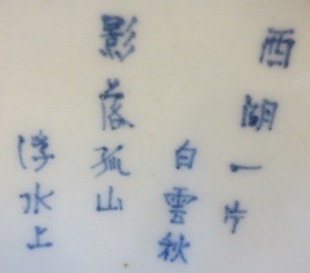 西湖一片
白雲秋
影落孤山
浮水上